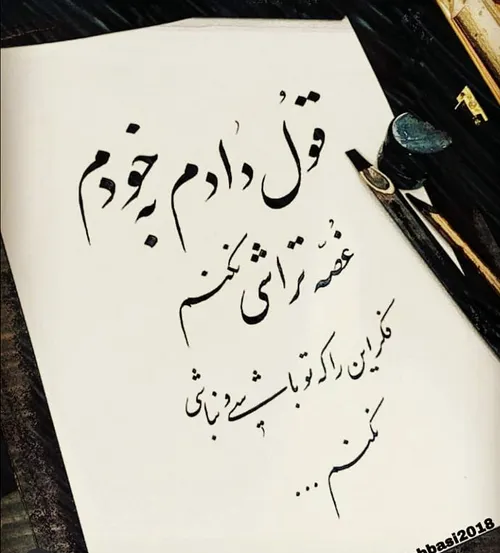 قول دادم به خودم
غصّه تراشی نکنم
فکر این را که تو باشی و نباشی
نکنم ...
bbasi2018